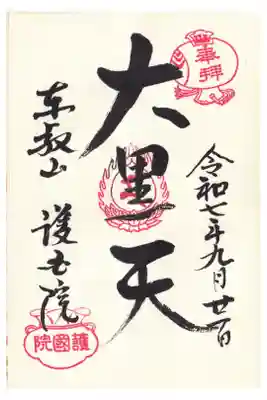 奉拝
令和七年九月廿一日
大黒天
東叡山
護国院
護國院